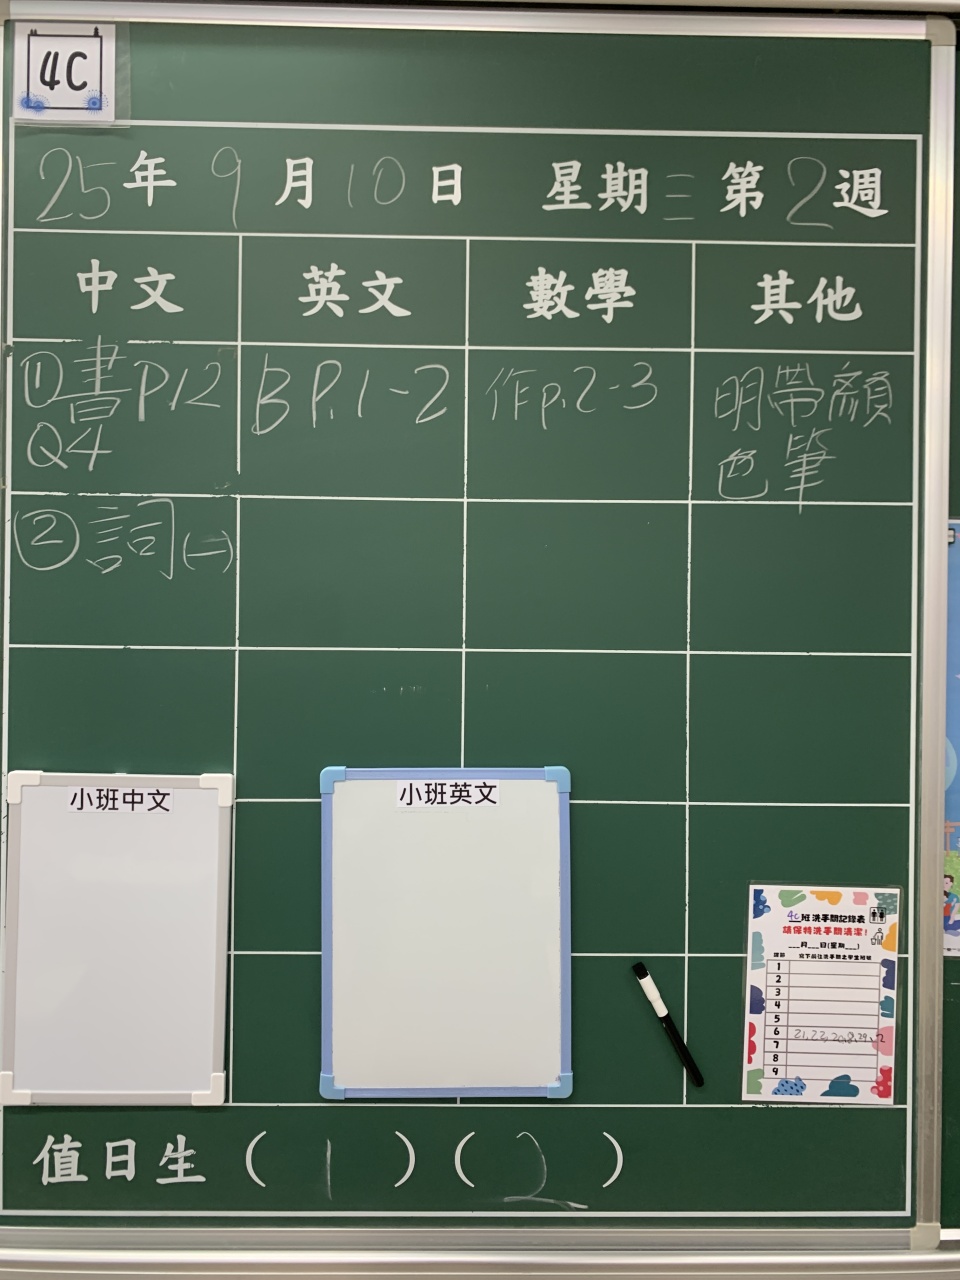 4C
25年 9月 10日 星期三 第2週
中文 英文 數學 其他
①書P.12
Q4
B P.1-2
作p.2-3
明帶顏
色筆
②詞(一)
小班中文
小班英文
4C班 洗手間記錄表
請保持洗手間清潔!
___月___日(星期___)
1
2
3
4
5
6 21, 22, 20, 8, 29, 12
7
8
9
值日生 (1) (2)